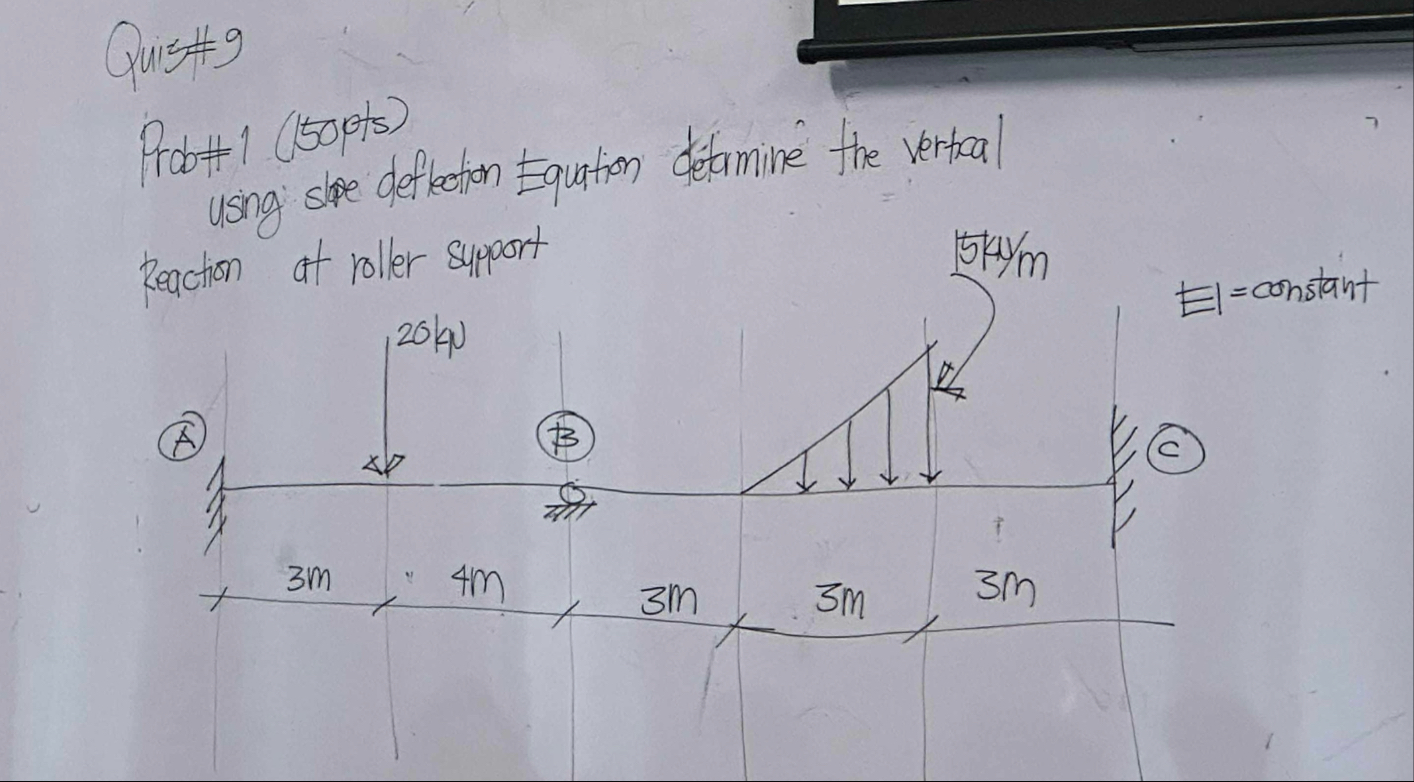 Quiz#9
Prob#1 (150pts)
using slope deflection Equation determine the vertical
Reaction at roller support
15kN/m
EI = constant
20kN
A
B
C
3m
4m
3m
3m
3m